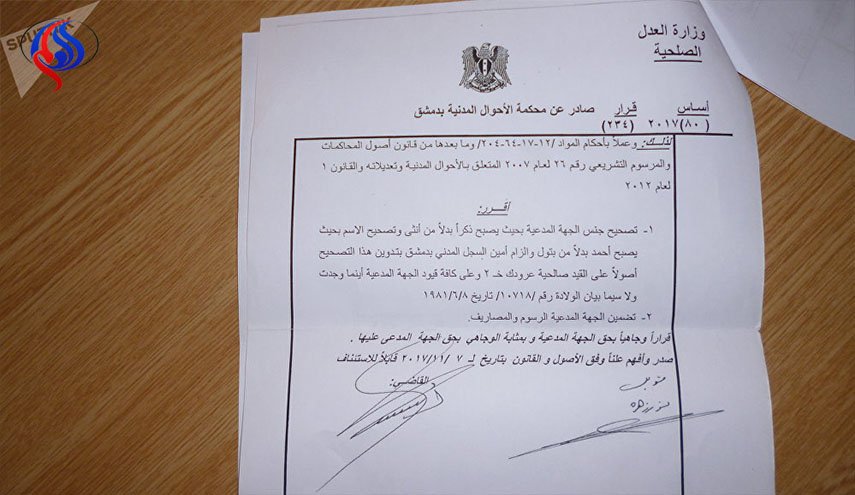 SPUTNIK
وزارة العدل
الصلحية
أساس قرار صادر عن محكمة الأحوال المدنية بدمشق
(٨٠)٢٠١٧ (٢٣٤)
لذلك: وعملاً بأحكام المواد /١٢-١٧-٦٤-٢٠٤/ وما بعدها من قانون أصول المحاكمات
والمرسوم التشريعي رقم ٢٦ لعام ٢٠٠٧ المتعلق بالأحوال المدنية وتعديلاته والقانون ١
لعام ٢٠١٢
أقرر:
١- تصحيح جنس الجهة المدعية بحيث يصبح ذكراً بدلاً من أنثى وتصحيح الاسم بحيث
يصبح أحمد بدلاً من بتول والزام أمين السجل المدني بدمشق بتدوين هذا التصحيح
أصولاً على القيد صالحية عرودك خـ ٢ وعلى كافة قيود الجهة المدعية أينما وجدت
ولا سيما بيان الولادة رقم /١٠٧١٨/ تاريخ ١٩٨١/٦/٨
٢- تضمين الجهة المدعية الرسوم والمصاريف.
قراراً وجاهياً بحق الجهة المدعية و بمثابة الوجاهي بحق الجهة المدعى عليها .
صدر وأفهم علناً وفق الأصول و القانون بتاريخ لـ ٧ /٢٠١٧/١١ قابلاً للاستئناف
القاضي: